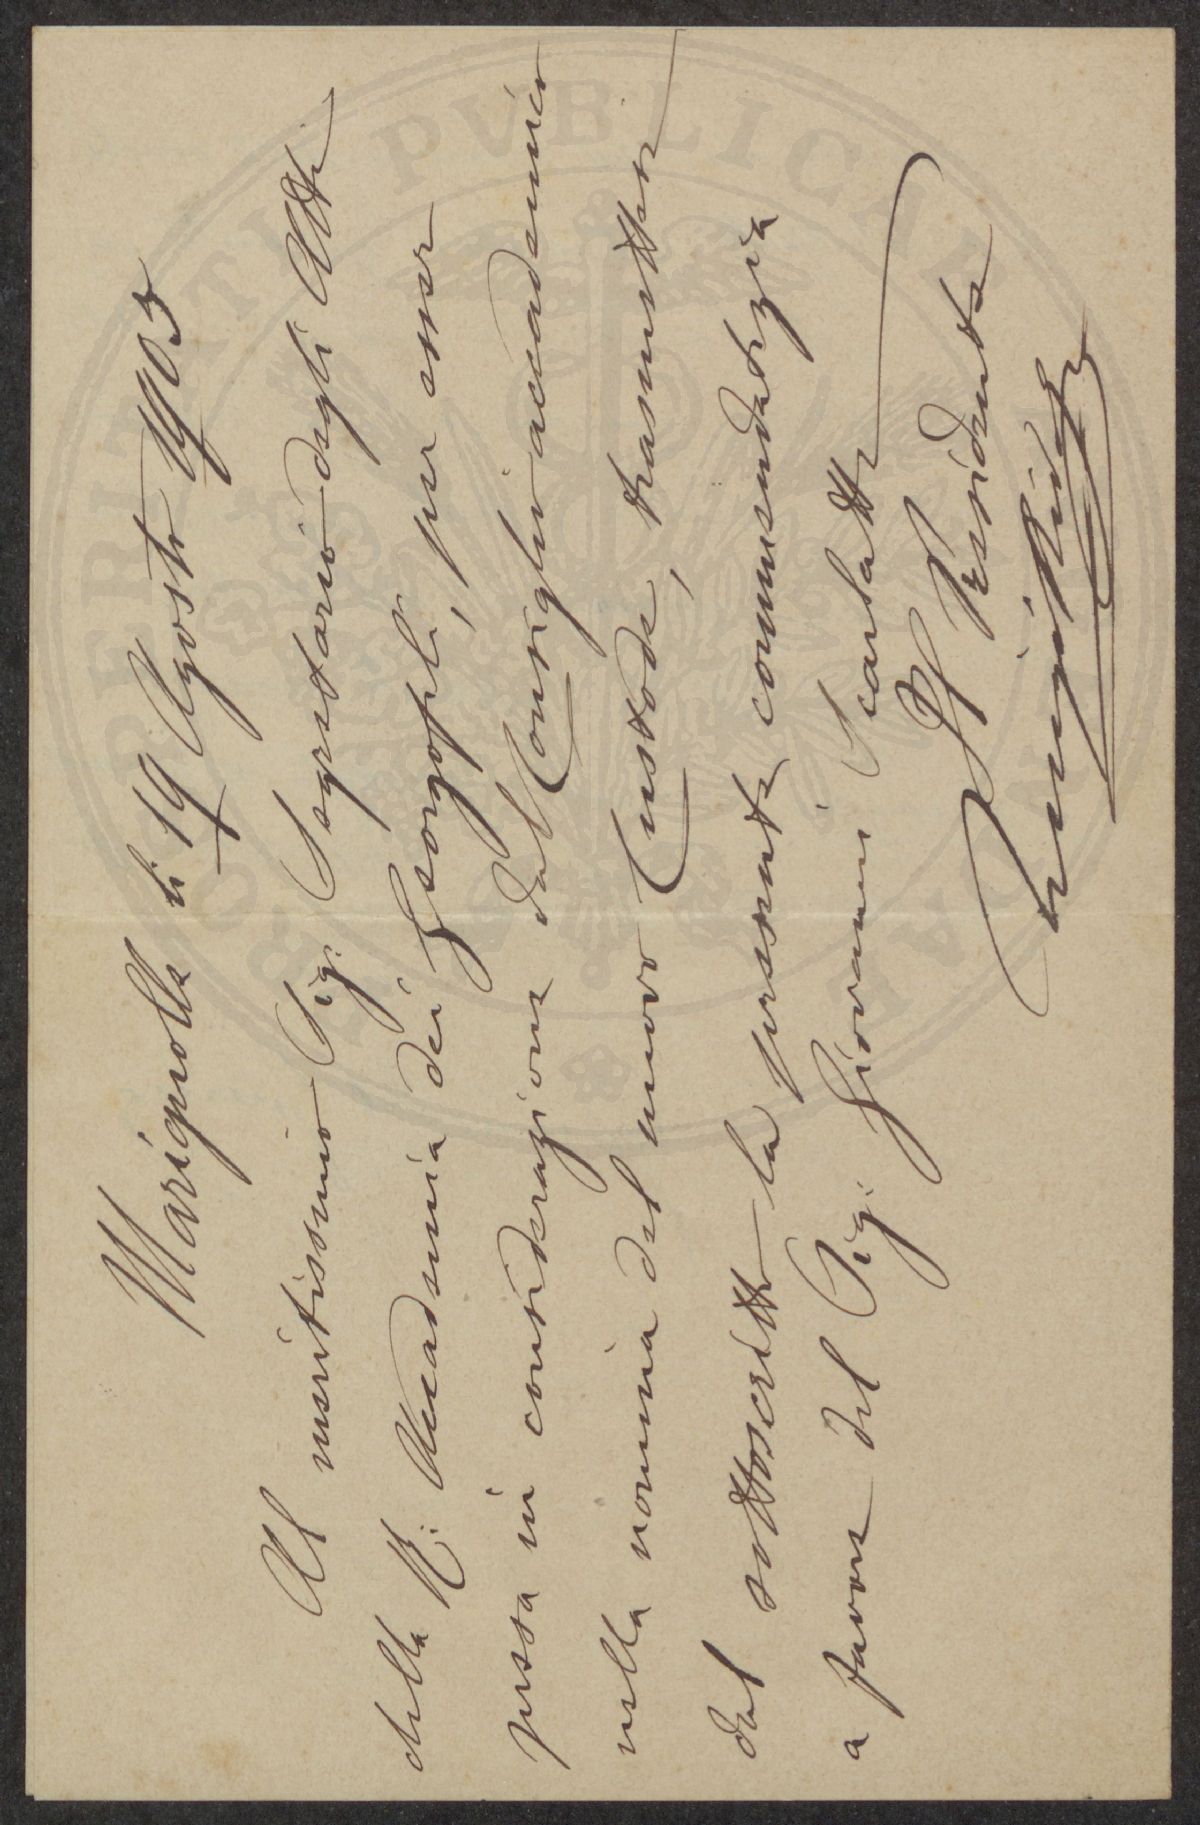 Marignolle li 19 Agosto 1903
Al meritissimo Sig. Segretario degli Atti
della R. Accademia dei Georgofili, per esser
presa in considerazione dal Consiglio accademico
nella nomina del nuovo Custode, trasmetter
dal sottoscritto la presente commendatizia
a favore del Sig. Giovanni Scarlatti
Il Presidente
Luigi Ridolfi
PROSPERITATI PUBLICAE AUGENDAE